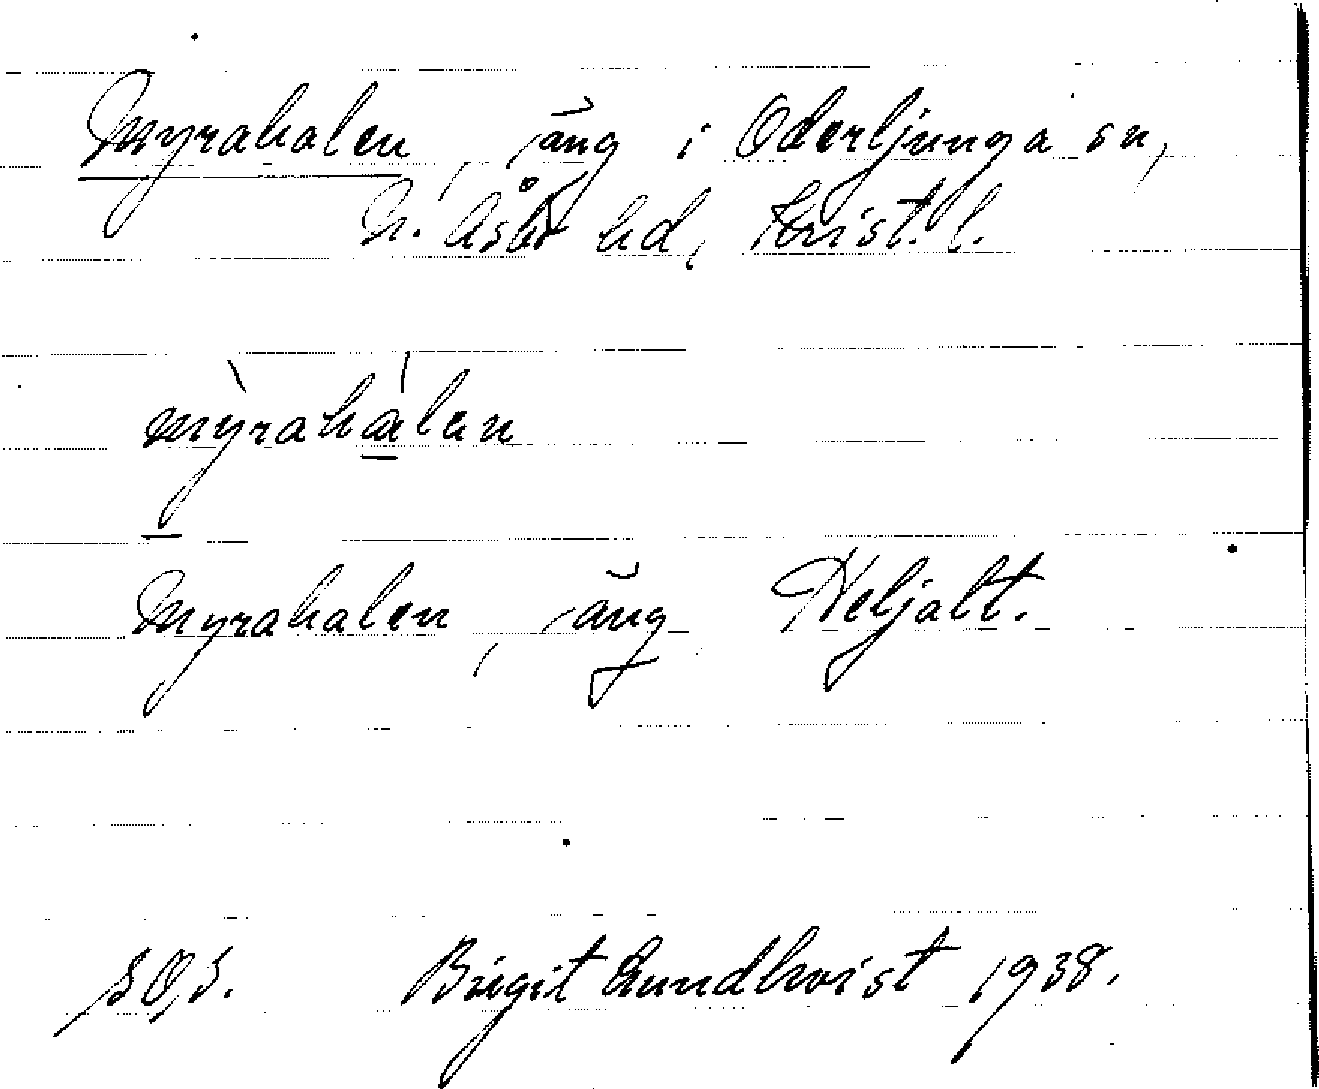 Myrahalen, äng i Oderljunga sn,
N. Åsbo hd, Krist. l.
mỳrahálen
Myrahalen, äng Heljalt.
Birgit Lundkvist 1938.